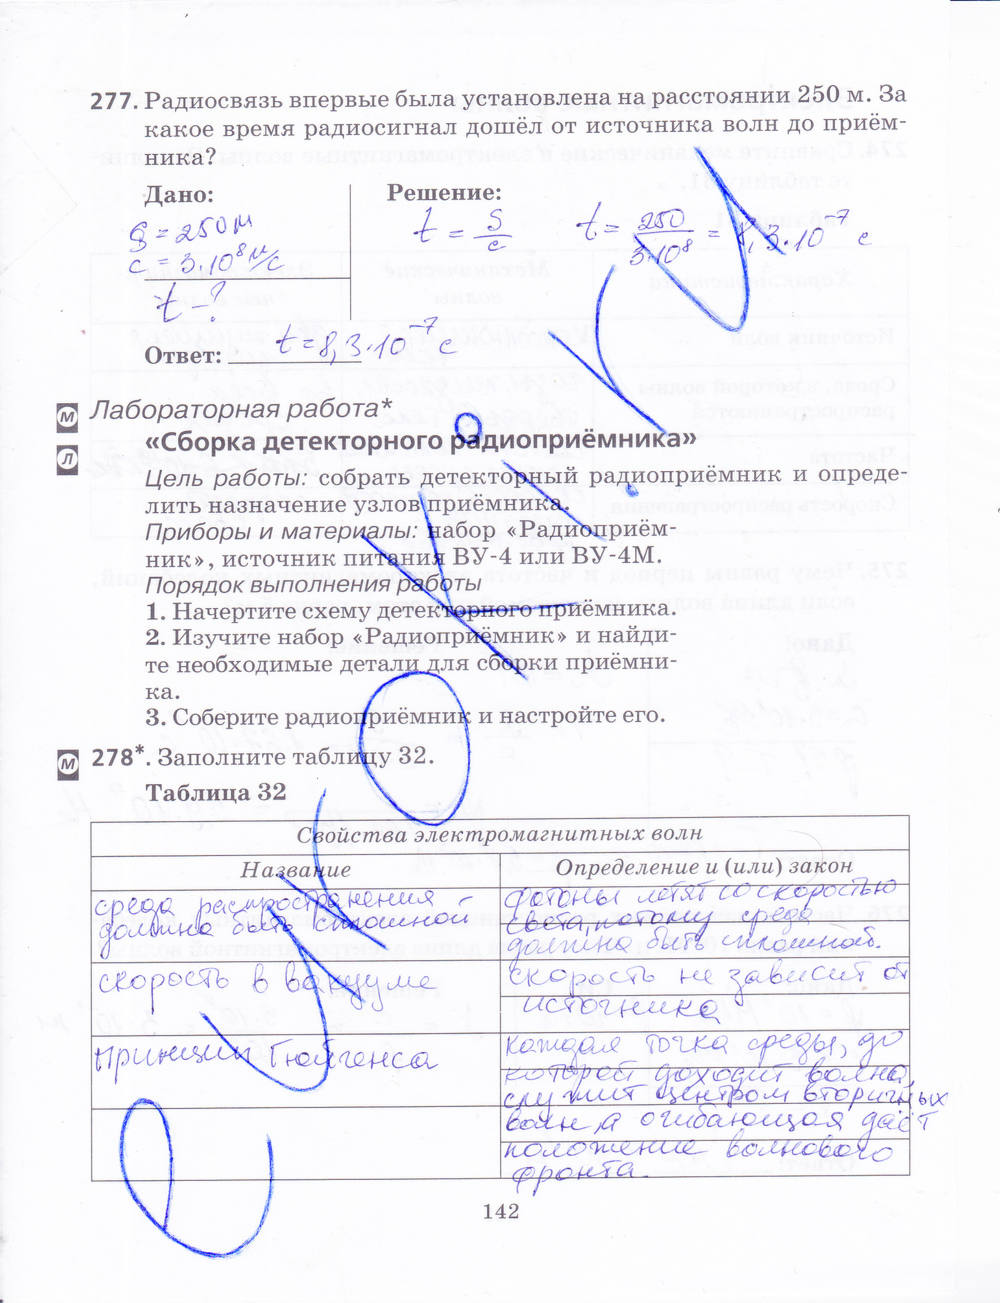 277. Радиосвязь впервые была установлена на расстоянии 250 м. За
какое время радиосигнал дошёл от источника волн до приём-
ника?
Дано: Решение:
S = 250 м t = S/c t = 250/3·10⁸ = 8,3·10⁻⁷ с
c = 3·10⁸ м/с
t - ?
Ответ: t = 8,3·10⁻⁷ с
М Лабораторная работа*
Л «Сборка детекторного радиоприёмника»
Цель работы: собрать детекторный радиоприёмник и опреде-
лить назначение узлов приёмника.
Приборы и материалы: набор «Радиоприём-
ник», источник питания ВУ-4 или ВУ-4М.
Порядок выполнения работы
1. Начертите схему детекторного приёмника.
2. Изучите набор «Радиоприёмник» и найди-
те необходимые детали для сборки приёмни-
ка.
3. Соберите радиоприёмник и настройте его.
М 278*. Заполните таблицу 32.
Таблица 32
Свойства электромагнитных волн
Название Определение и (или) закон
среда распространения
должна быть сплошной
фотоны летят со скоростью
света, потому среда
должна быть сплошной.
скорость в вакууме
скорость не зависит от
источника
принцип Гюйгенса
каждая точка среды, до
которой доходит волна,
служит центром вторичных
волн, а огибающая даёт
положение волнового
фронта.
142